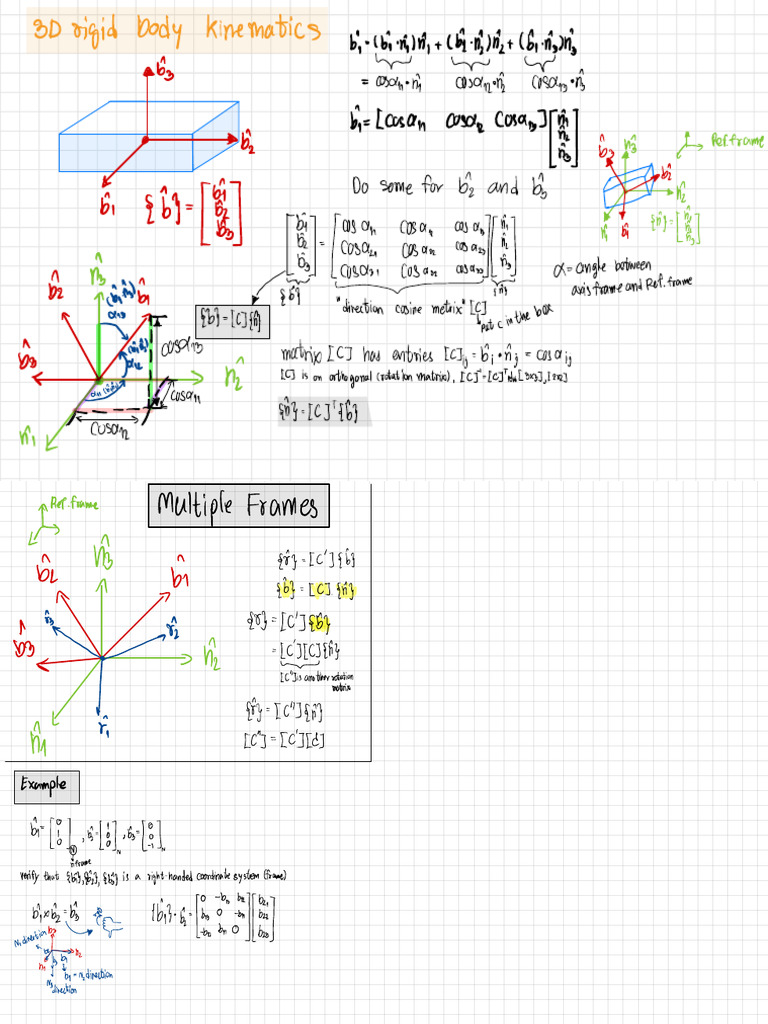 3D rigid body kinematics
b̂3
b̂2
b̂1
{b̂} = [b̂1 b̂2 b̂3]
b̂1 = (b̂1·n̂1)n̂1 + (b̂1·n̂2)n̂2 + (b̂1·n̂3)n̂3
= cosα11·n̂1 cosα12·n̂2 cosα13·n̂3
b̂1 = [cosα11 cosα12 cosα13] [n̂1 n̂2 n̂3]
Ref. frame
b̂3
n̂3
b̂2
n̂2
n̂1
b̂1
{n̂} = [n̂1 n̂2 n̂3]
Do some for b̂2 and b̂3
[b̂1 b̂2 b̂3] = [cosα11 cosα12 cosα13
cosα21 cosα22 cosα23
cosα31 cosα32 cosα33] [n̂1 n̂2 n̂3]
{b̂}
{n̂}
"direction cosine metrix" [C]
put c in the box
α = angle between
axis frame and Ref. frame
{b̂} = [C]{n̂}
n̂3
b̂2
(b̂1·n̂3)
b̂1
α13
α12
cosα13
b̂3
n̂2
α11
cosα11
n̂1
cosα12
matrix [C] has entries [C]ij = b̂i·n̂j = cosαij
[C] is an orthogonal (rotation matrix), [C]⁻¹=[C]ᵀ
{n̂} = [C]ᵀ{b̂}
Multiple Frames
Ref. frame
n̂3
b̂2
b̂1
r̂3
r̂2
b̂3
n̂2
r̂1
n̂1
{r̂} = [C']{b̂}
{b̂} = [C]{n̂}
{r} = [C']{b̂}
= [C'][C]{n̂}
[C''] is another rotation
matrix
{r̂} = [C'']{n̂}
[C''] = [C'][C]
Example
b̂1 = [0 1 0]N, b̂2 = [1 0 0]N, b̂3 = [0 0 -1]N
n frame
verify that {b̂1},{b̂2},{b̂3} is a right-handed coordinate system (frame)
b̂1 x b̂2 = b̂3
{b̂1}·b̂2 = [0 -b13 b12
b13 0 -b11
-b12 b11 0] [b21 b22 b23]
n1 direction
n3
n2
n1
b2
b3
b1 = n2 direction
N3
direction